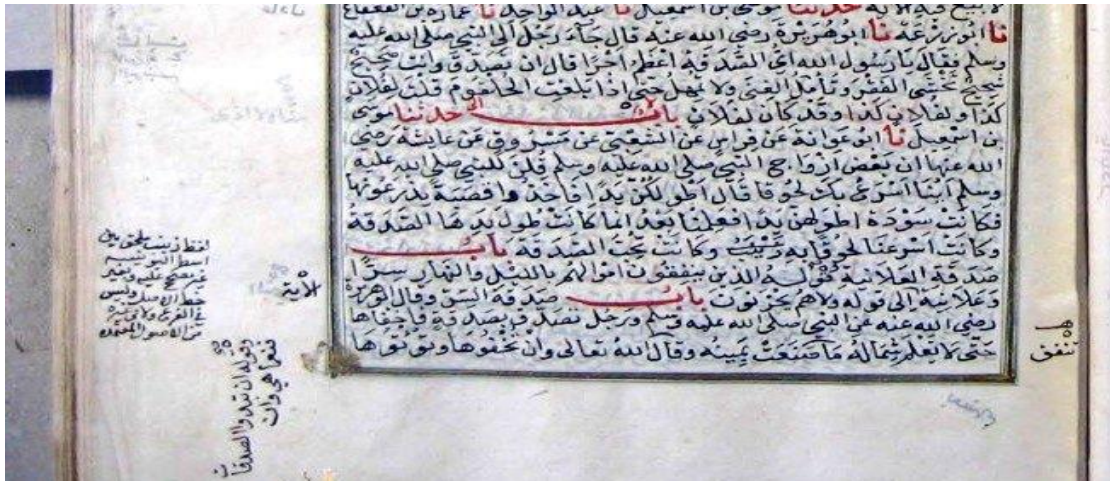 لا بيع فيه الآية حدثنا موسى بن اسمعيل نا عبد الواحد نا عمارة بن القعقاع
نا ابو زرعة نا ابو هريرة رضي الله عنه قال جاء رجل الى النبي صلى الله عليه
وسلم فقال يا رسول الله اي الصدقة اعظم اجرا قال ان تصدق وانت صحيح
شحيح تخشى الفقر وتأمل الغنى ولا تمهل حتى اذا بلغت الحلقوم قلت لفلان
كذا ولفلان كذا وقد كان لفلان باب حدثنا موسى
بن اسمعيل نا ابو عوانة عن فراس عن الشعبي عن مسروق عن عايشة رضي
الله عنها ان بعض ازواج النبي صلى الله عليه وسلم قلن للنبي صلى الله عليه
وسلم اينا اسرع بك لحوقا قال اطولكن يدا فاخذوا قصبة يذرعونها
فكانت سودة اطولهن يدا فعلمنا بعد انما كانت طول يدها الصدقة
وكانت اسرعنا لحوقا به زينب وكانت تحب الصدقة باب
صدقة العلانية قوله الذين ينفقون اموالهم بالليل والنهار سرا
وعلانية الى قوله ولا هم يحزنون باب صدقة السر وقال ابو هريرة
رضي الله عنه عن النبي صلى الله عليه وسلم ورجل تصدق بصدقة فاخفاها
حتى لا تعلم شماله ما صنعت يمينه وقال الله تعالى وان تخفوها وتؤتوها
الآية
تنفق
وقوله ان تبدوا الصدقات
فنعما هي وان